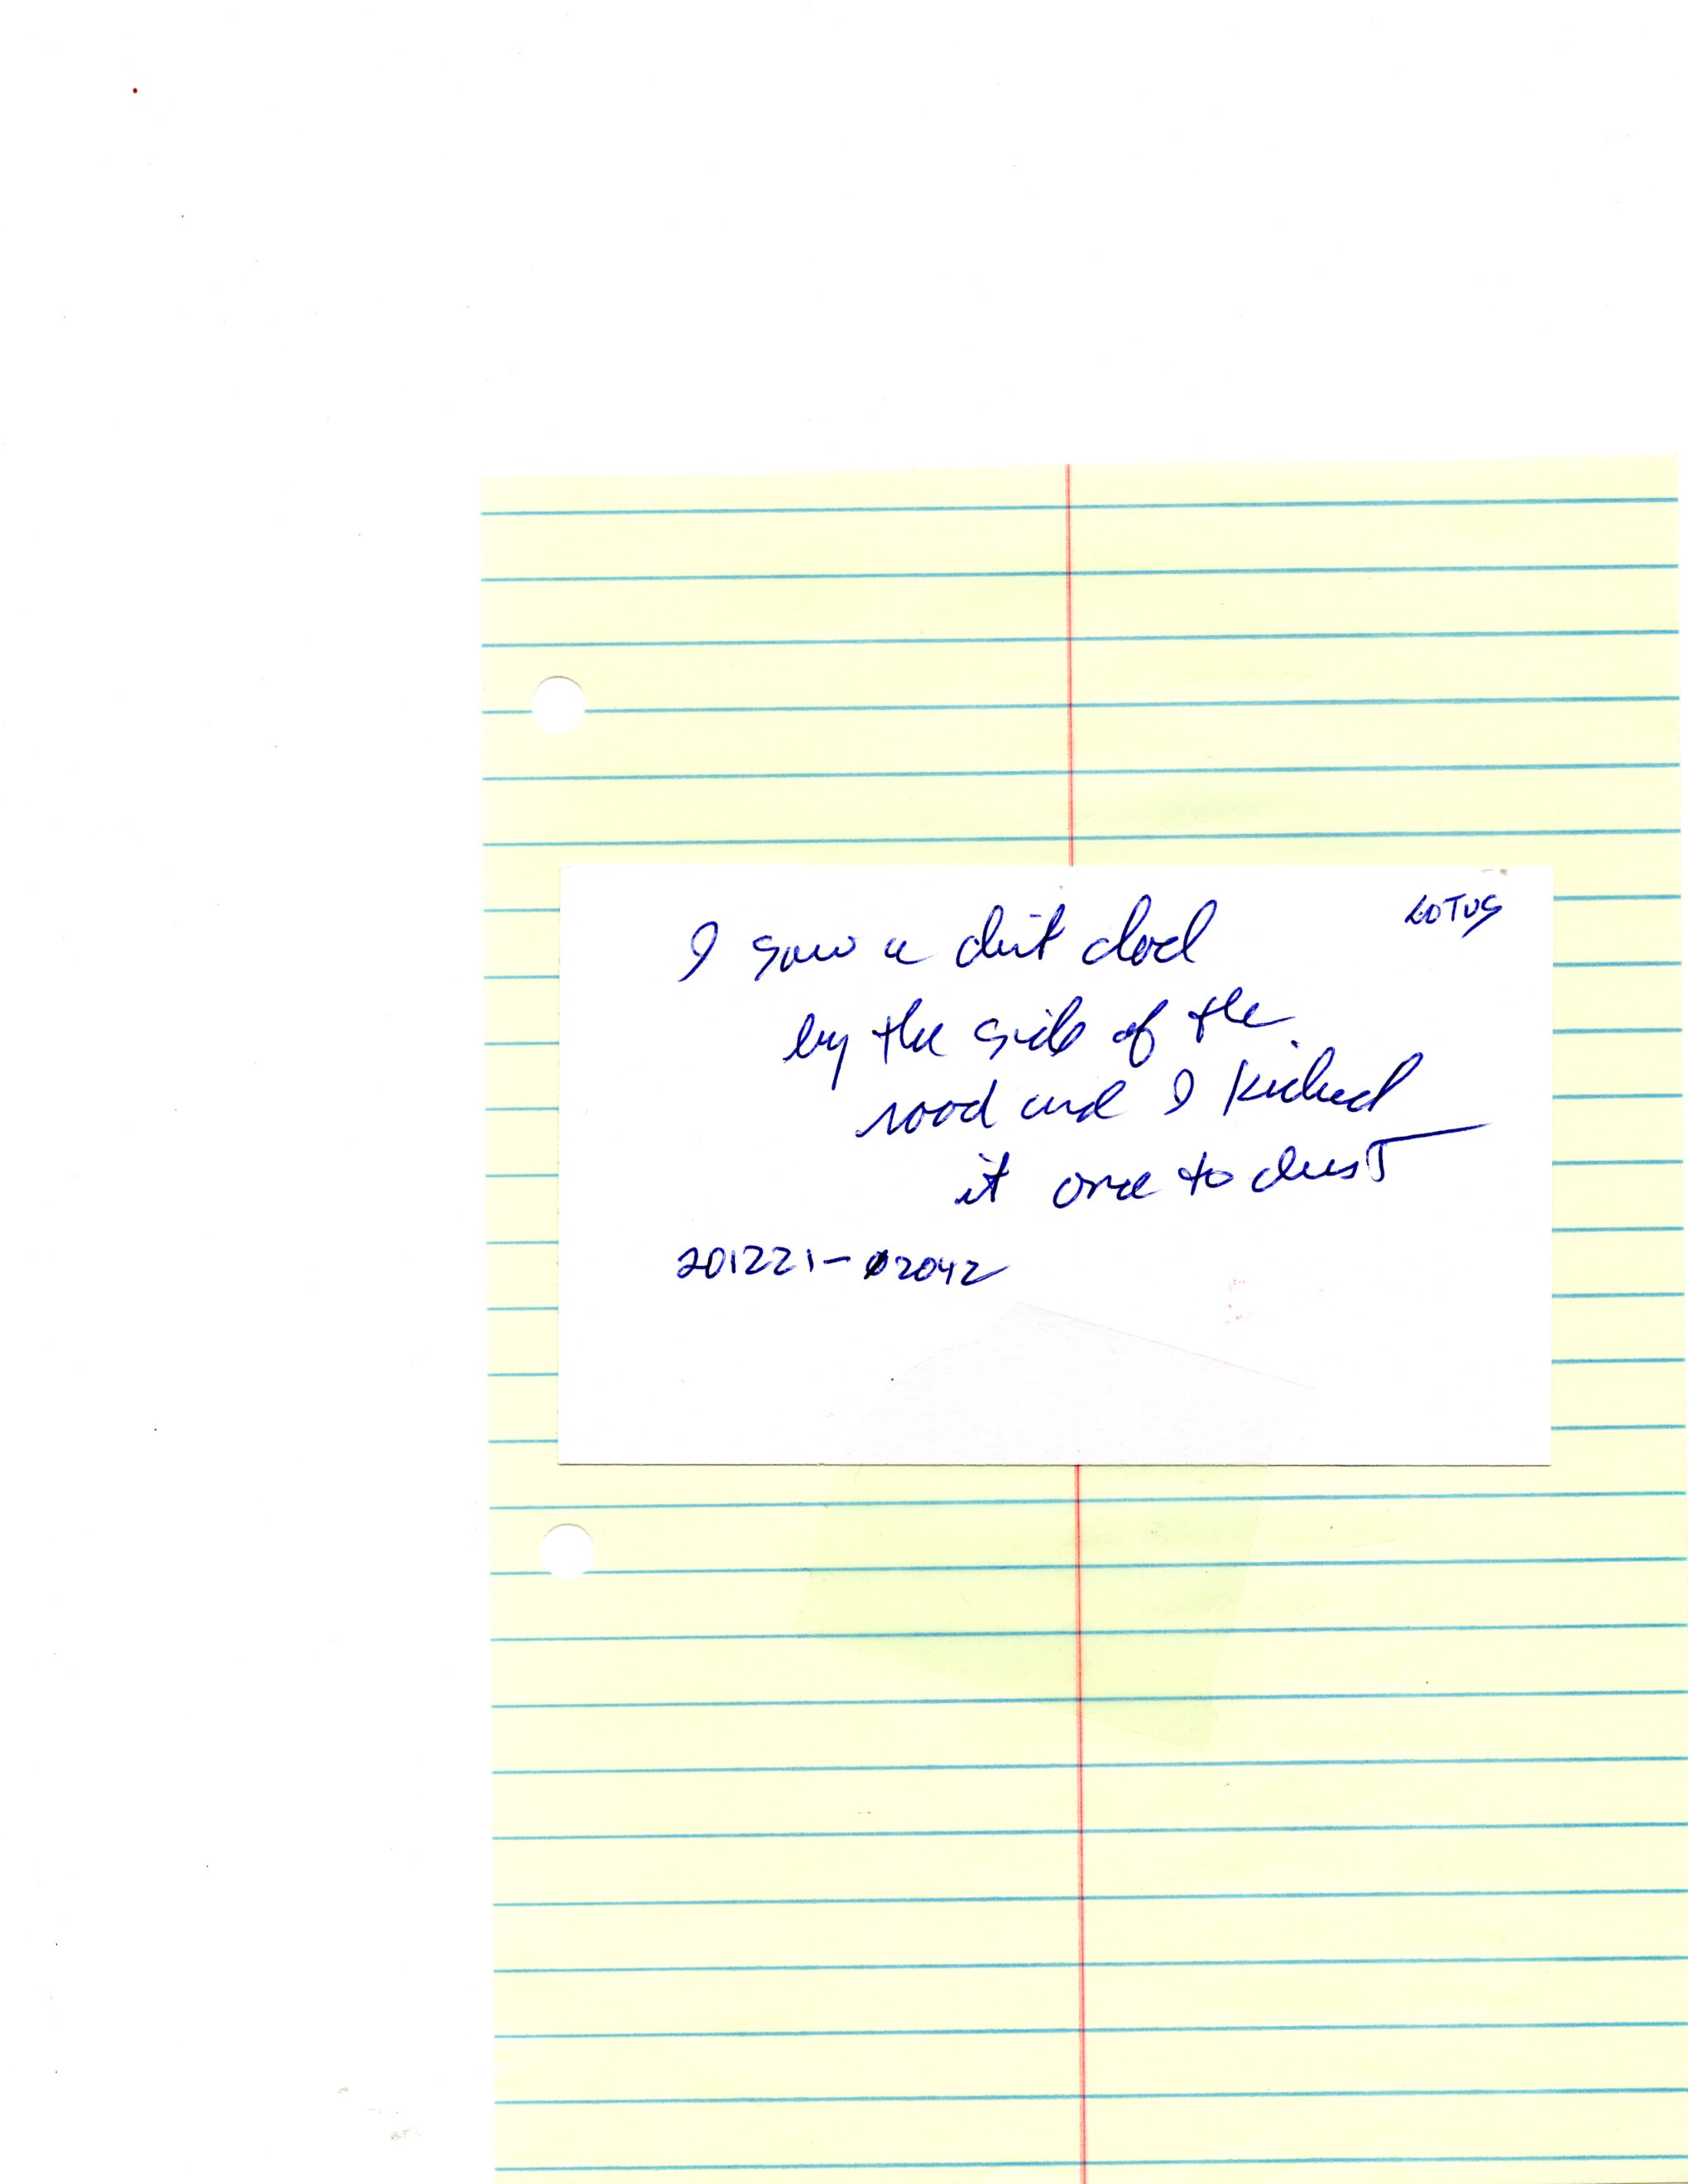 LOTUS
I saw a dirt clod
by the side of the
road and I kicked
it once to dust
201221-02042